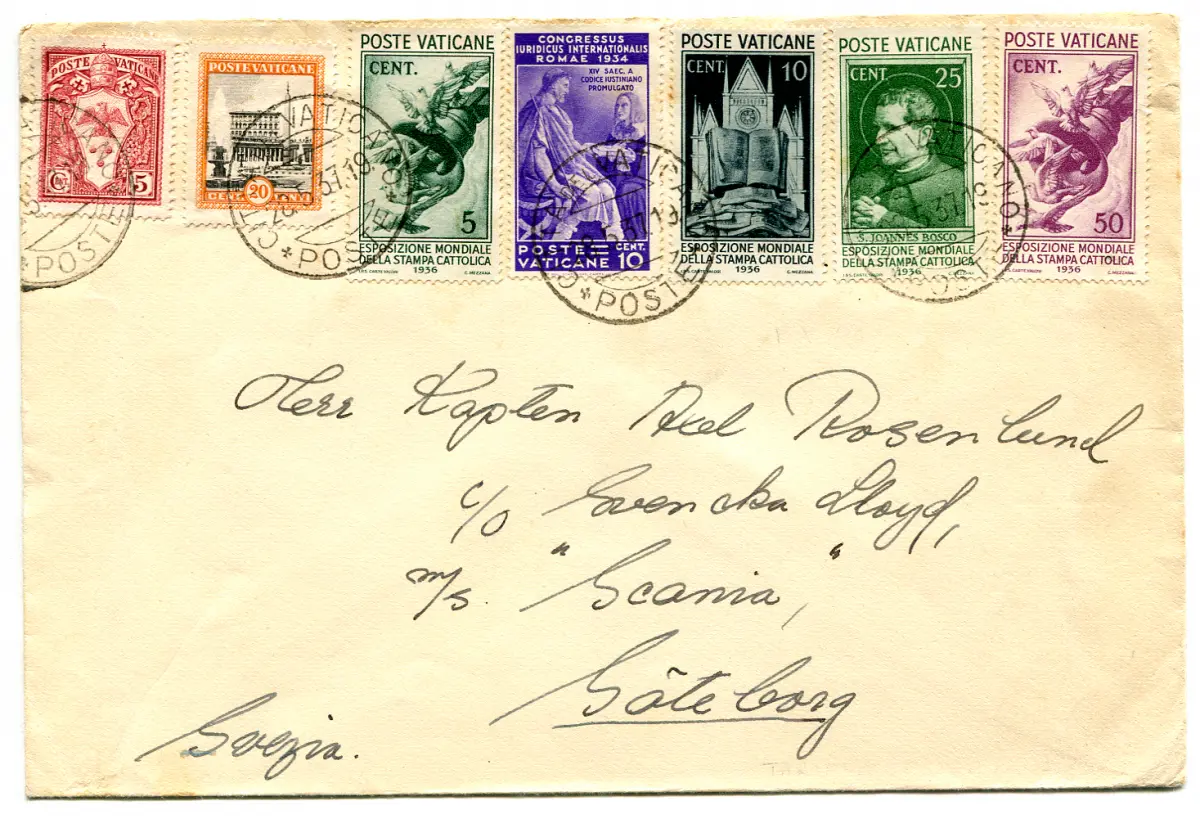 POSTE VATICANE
C. 5
POSTE VATICANE
20
POSTE VATICANE
CENT.
5
ESPOSIZIONE MONDIALE
DELLA STAMPA CATTOLICA
1936
CONGRESSUS
IURIDICUS INTERNATIONALIS
ROMAE 1934
XIV SAEC. A
CODICE IUSTINIANO
PROMULGATO
POSTE CENT.
VATICANE 10
POSTE VATICANE
CENT. 10
ESPOSIZIONE MONDIALE
DELLA STAMPA CATTOLICA
1936
C. MEZZANA
POSTE VATICANE
CENT. 25
S. JOANNES BOSCO
ESPOSIZIONE MONDIALE
DELLA STAMPA CATTOLICA
1936
POSTE VATICANE
CENT.
50
ESPOSIZIONE MONDIALE
DELLA STAMPA CATTOLICA
1936
C. MEZZANA
POSTE
VATICANO
POSTE
POSTE
Herr Kapten Axel Rosenlund
c/o Svenska Lloyd,
m/s. "Scania",
Göteborg
Svezia.